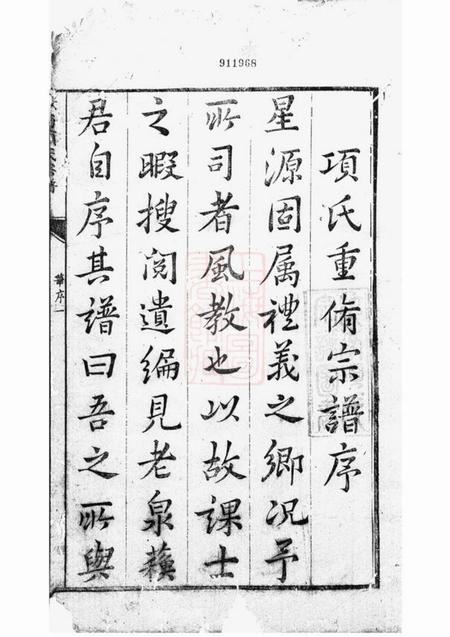 911968
項氏重脩宗譜序
星源固属禮義之鄉况予
所司者風教也以故課士
之暇搜閲遺編見老泉蘓
君自序其譜曰吾之所與
序一